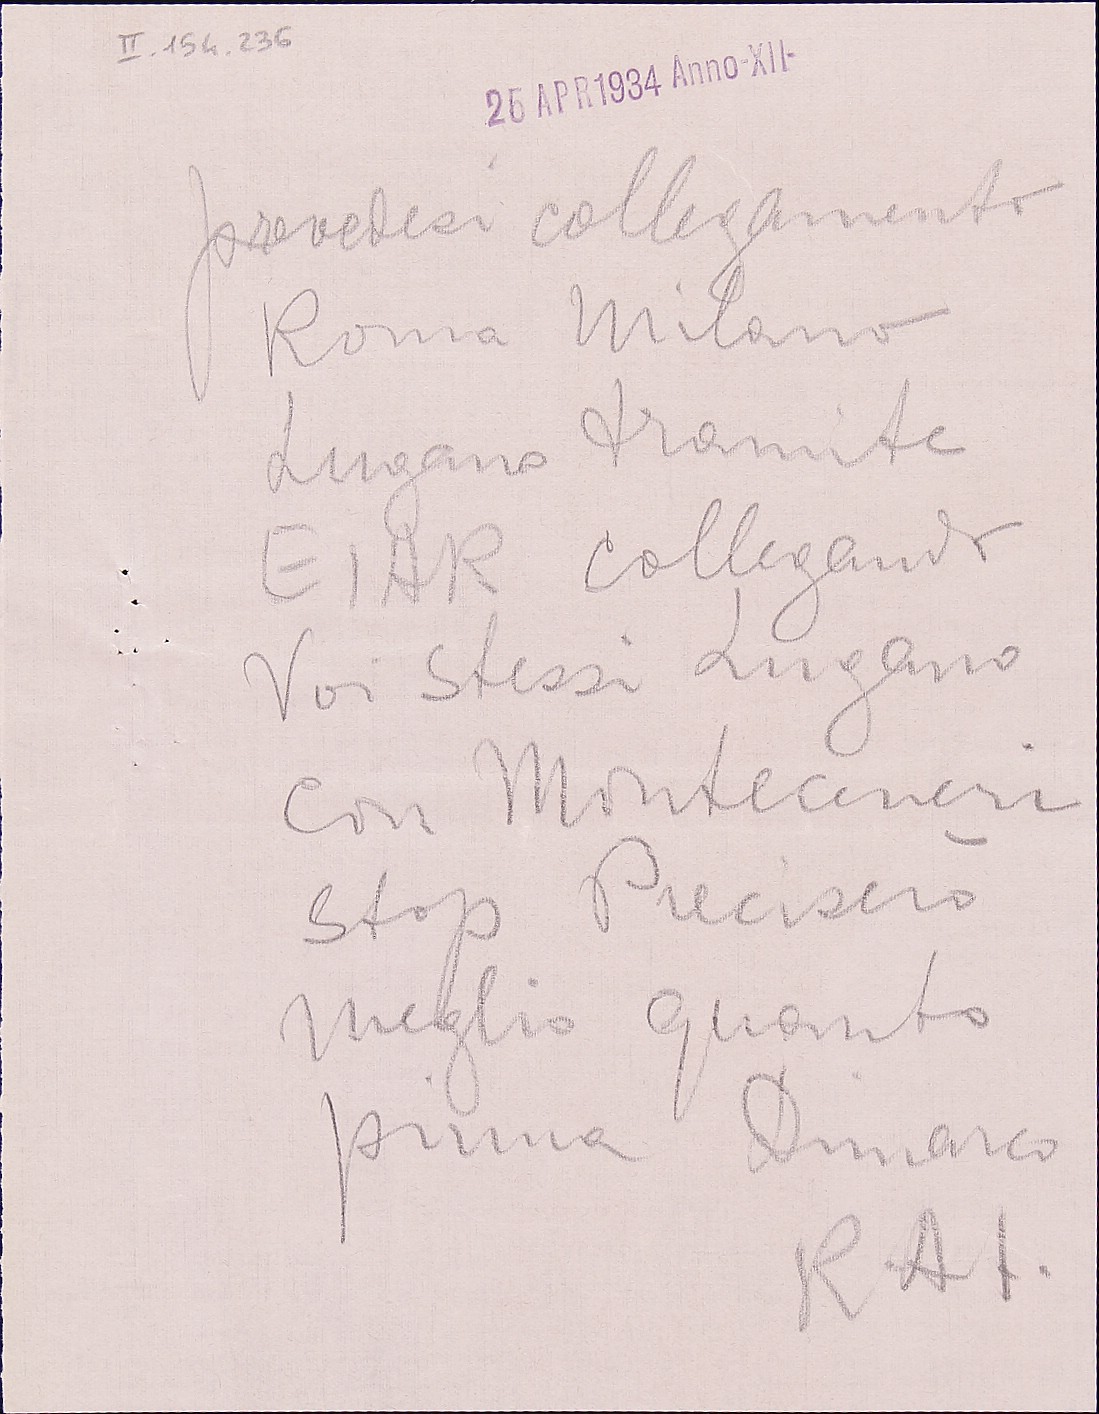 II.154.236
26 APR 1934 Anno-XII-
prevedesi collegamento
Roma Milano
Lugano tramite
EIAR collegando
Voi stessi Lugano
con Monteceneri
stop Preciserò
meglio quanto
prima Dimarco
R.A.I.